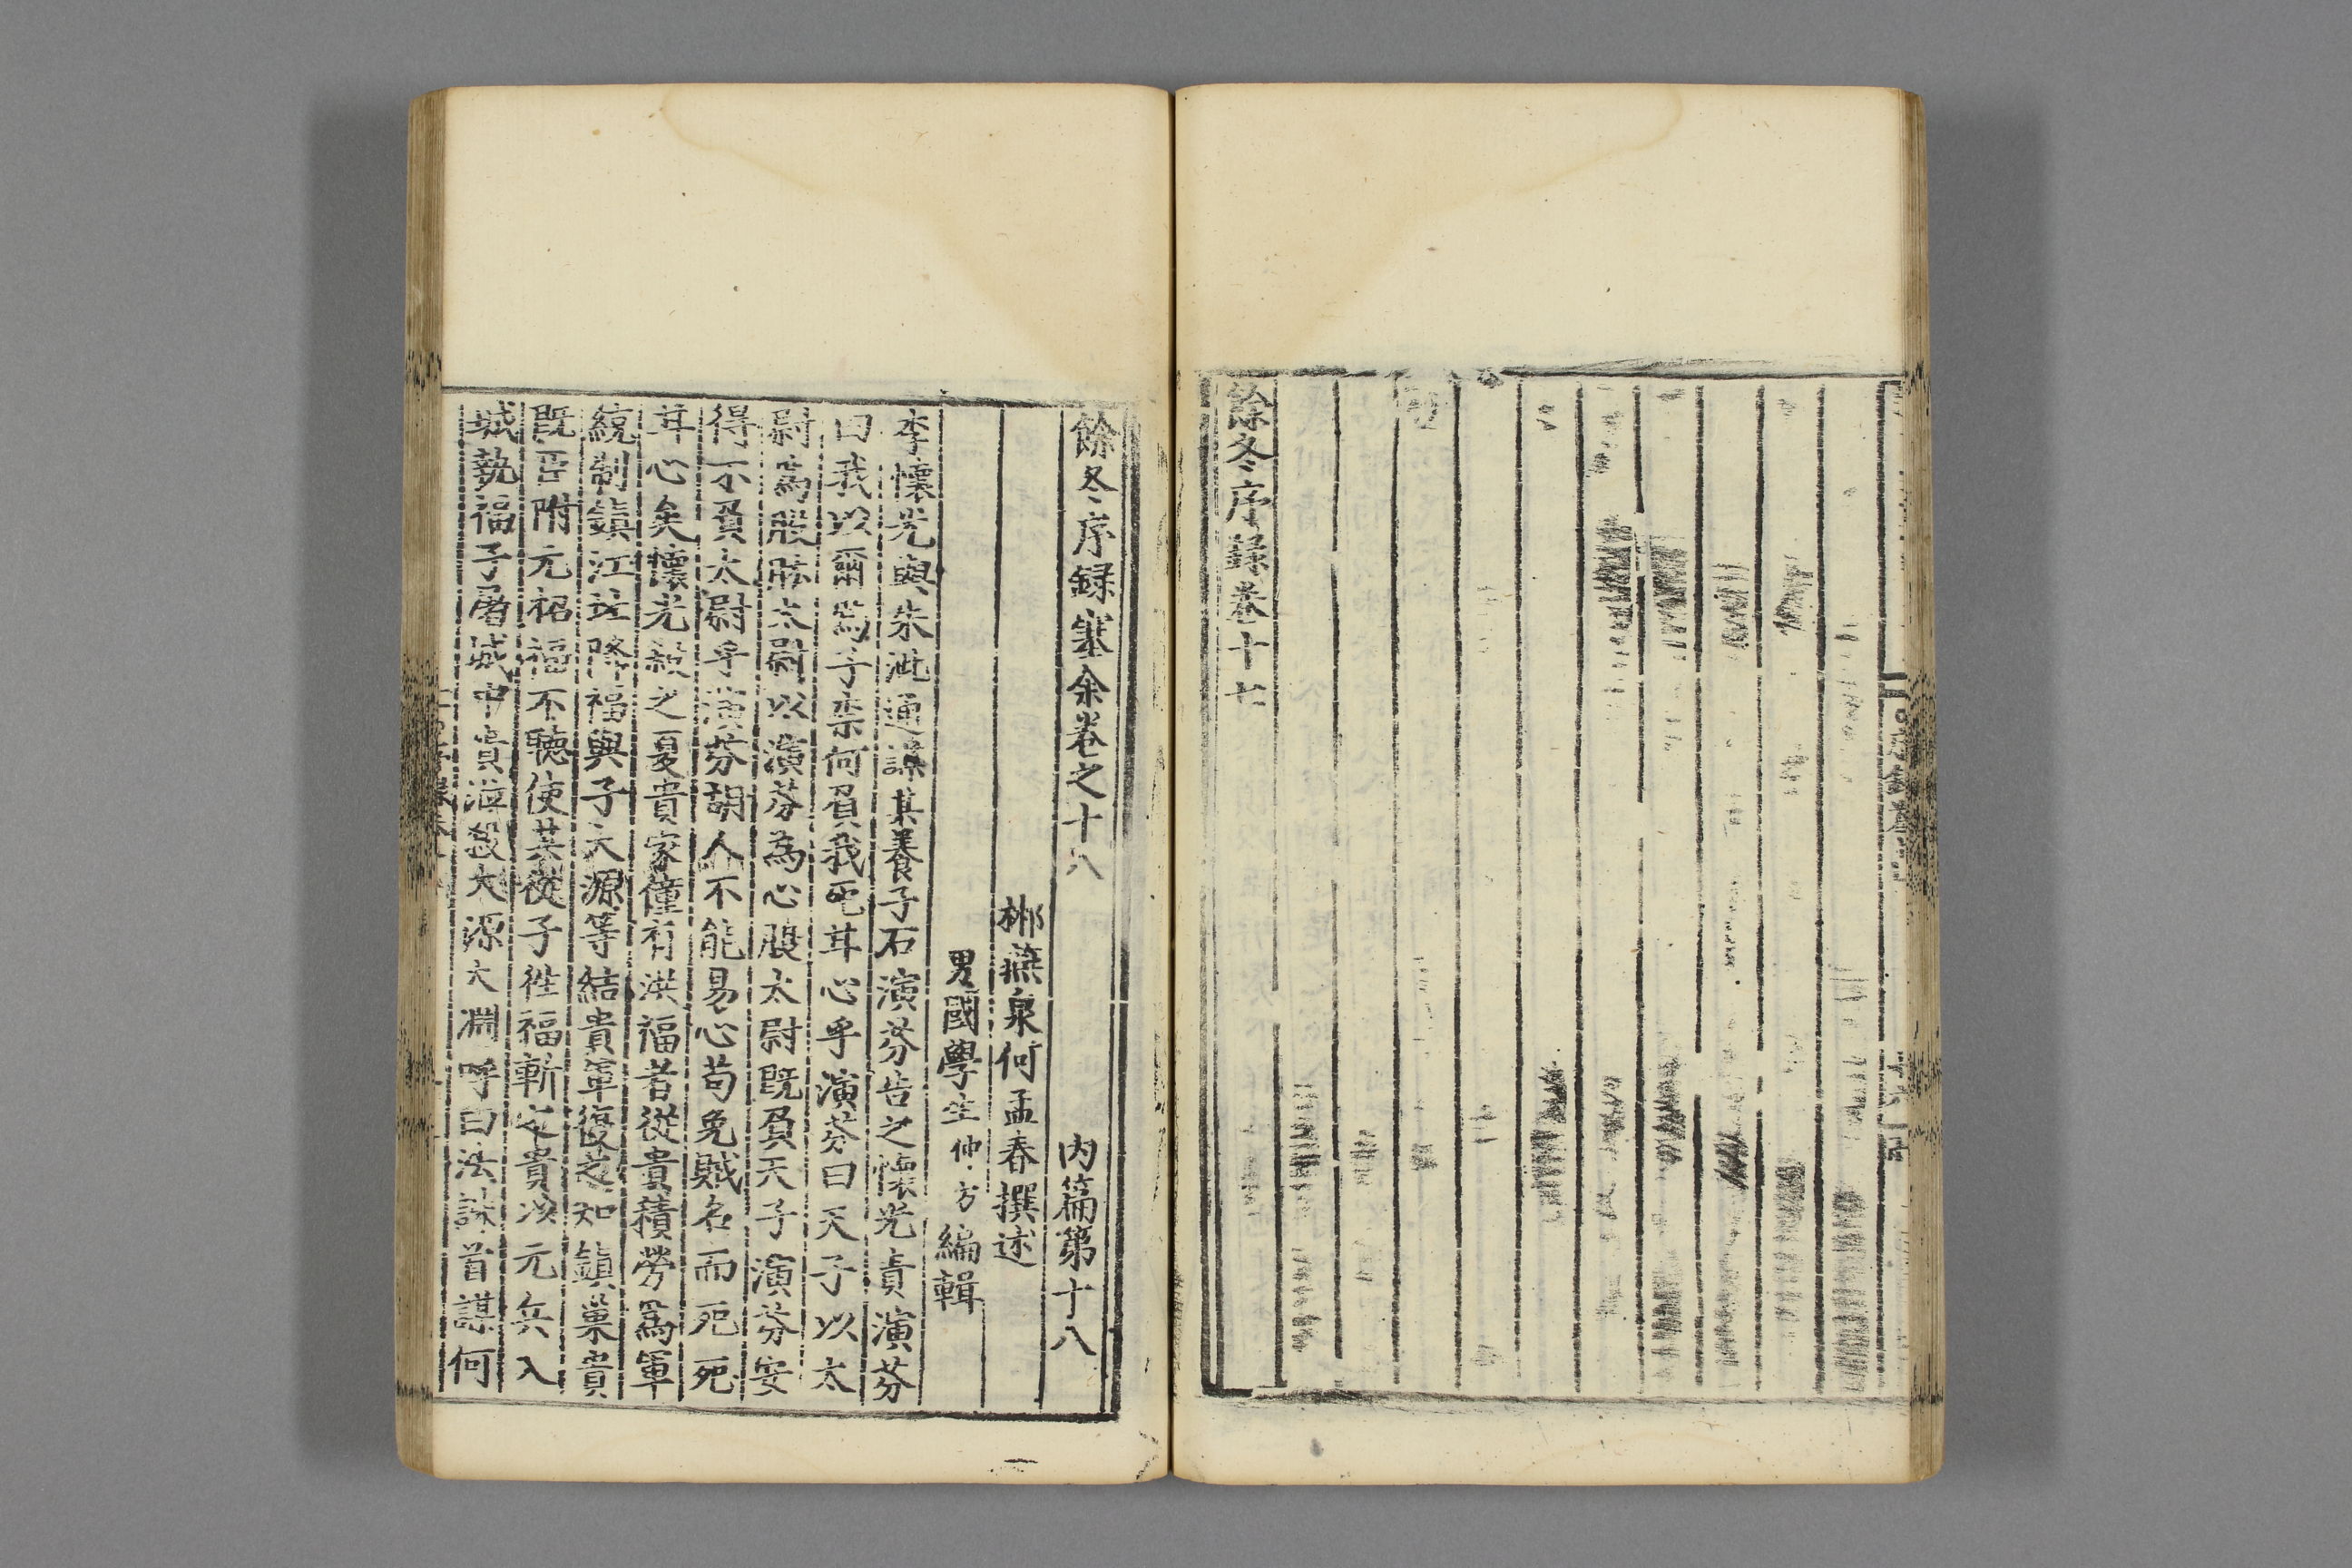 餘冬序録卷十七
餘冬序録塞余卷之十八　内篇第十八
郴燕泉何孟春撰述
男國學生仲方編輯
李懷光與朱泚通謀其養子石演芬告之懷光責演芬
曰我以爾爲子柰何負我死其心乎演芬曰天子以太
尉爲股肱太尉以演芬為心腹太尉旣負天子演芬安
得不負太尉乎演芬胡人不能易心苟免賊名而死死
其心矣懷光殺之夏貴家僮有洪福者從貴積勞爲軍
統制鎮江北降福與子大源等結貴軍復之知鎮巢貴
既臣附元招福不聽使其從子徃福斬之貴以元兵入
城執福子屠城中貴涖殺大源大淵呼曰法誅首謀何